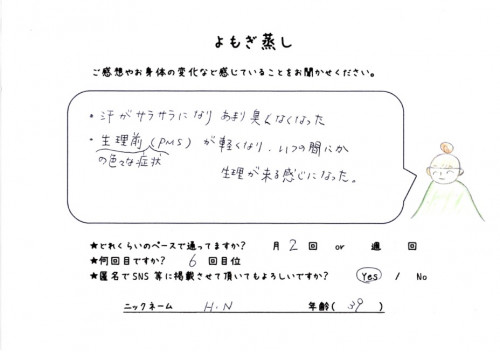 よもぎ蒸し
ご感想やお身体の変化など感じていることをお聞かせください。
・汗がサラサラになり あまり臭くなくなった
・生理前(PMS)が軽くなり、いつの間にか
の色々な症状
生理が来る感じになった。
★どれくらいのペースで通ってますか? 月 2 回 or 週 回
★何回目ですか? 6 回目位
★匿名でSNS等に掲載させて頂いてもよろしいですか? Yes / No
ニックネーム H.N 年齢( 39 )